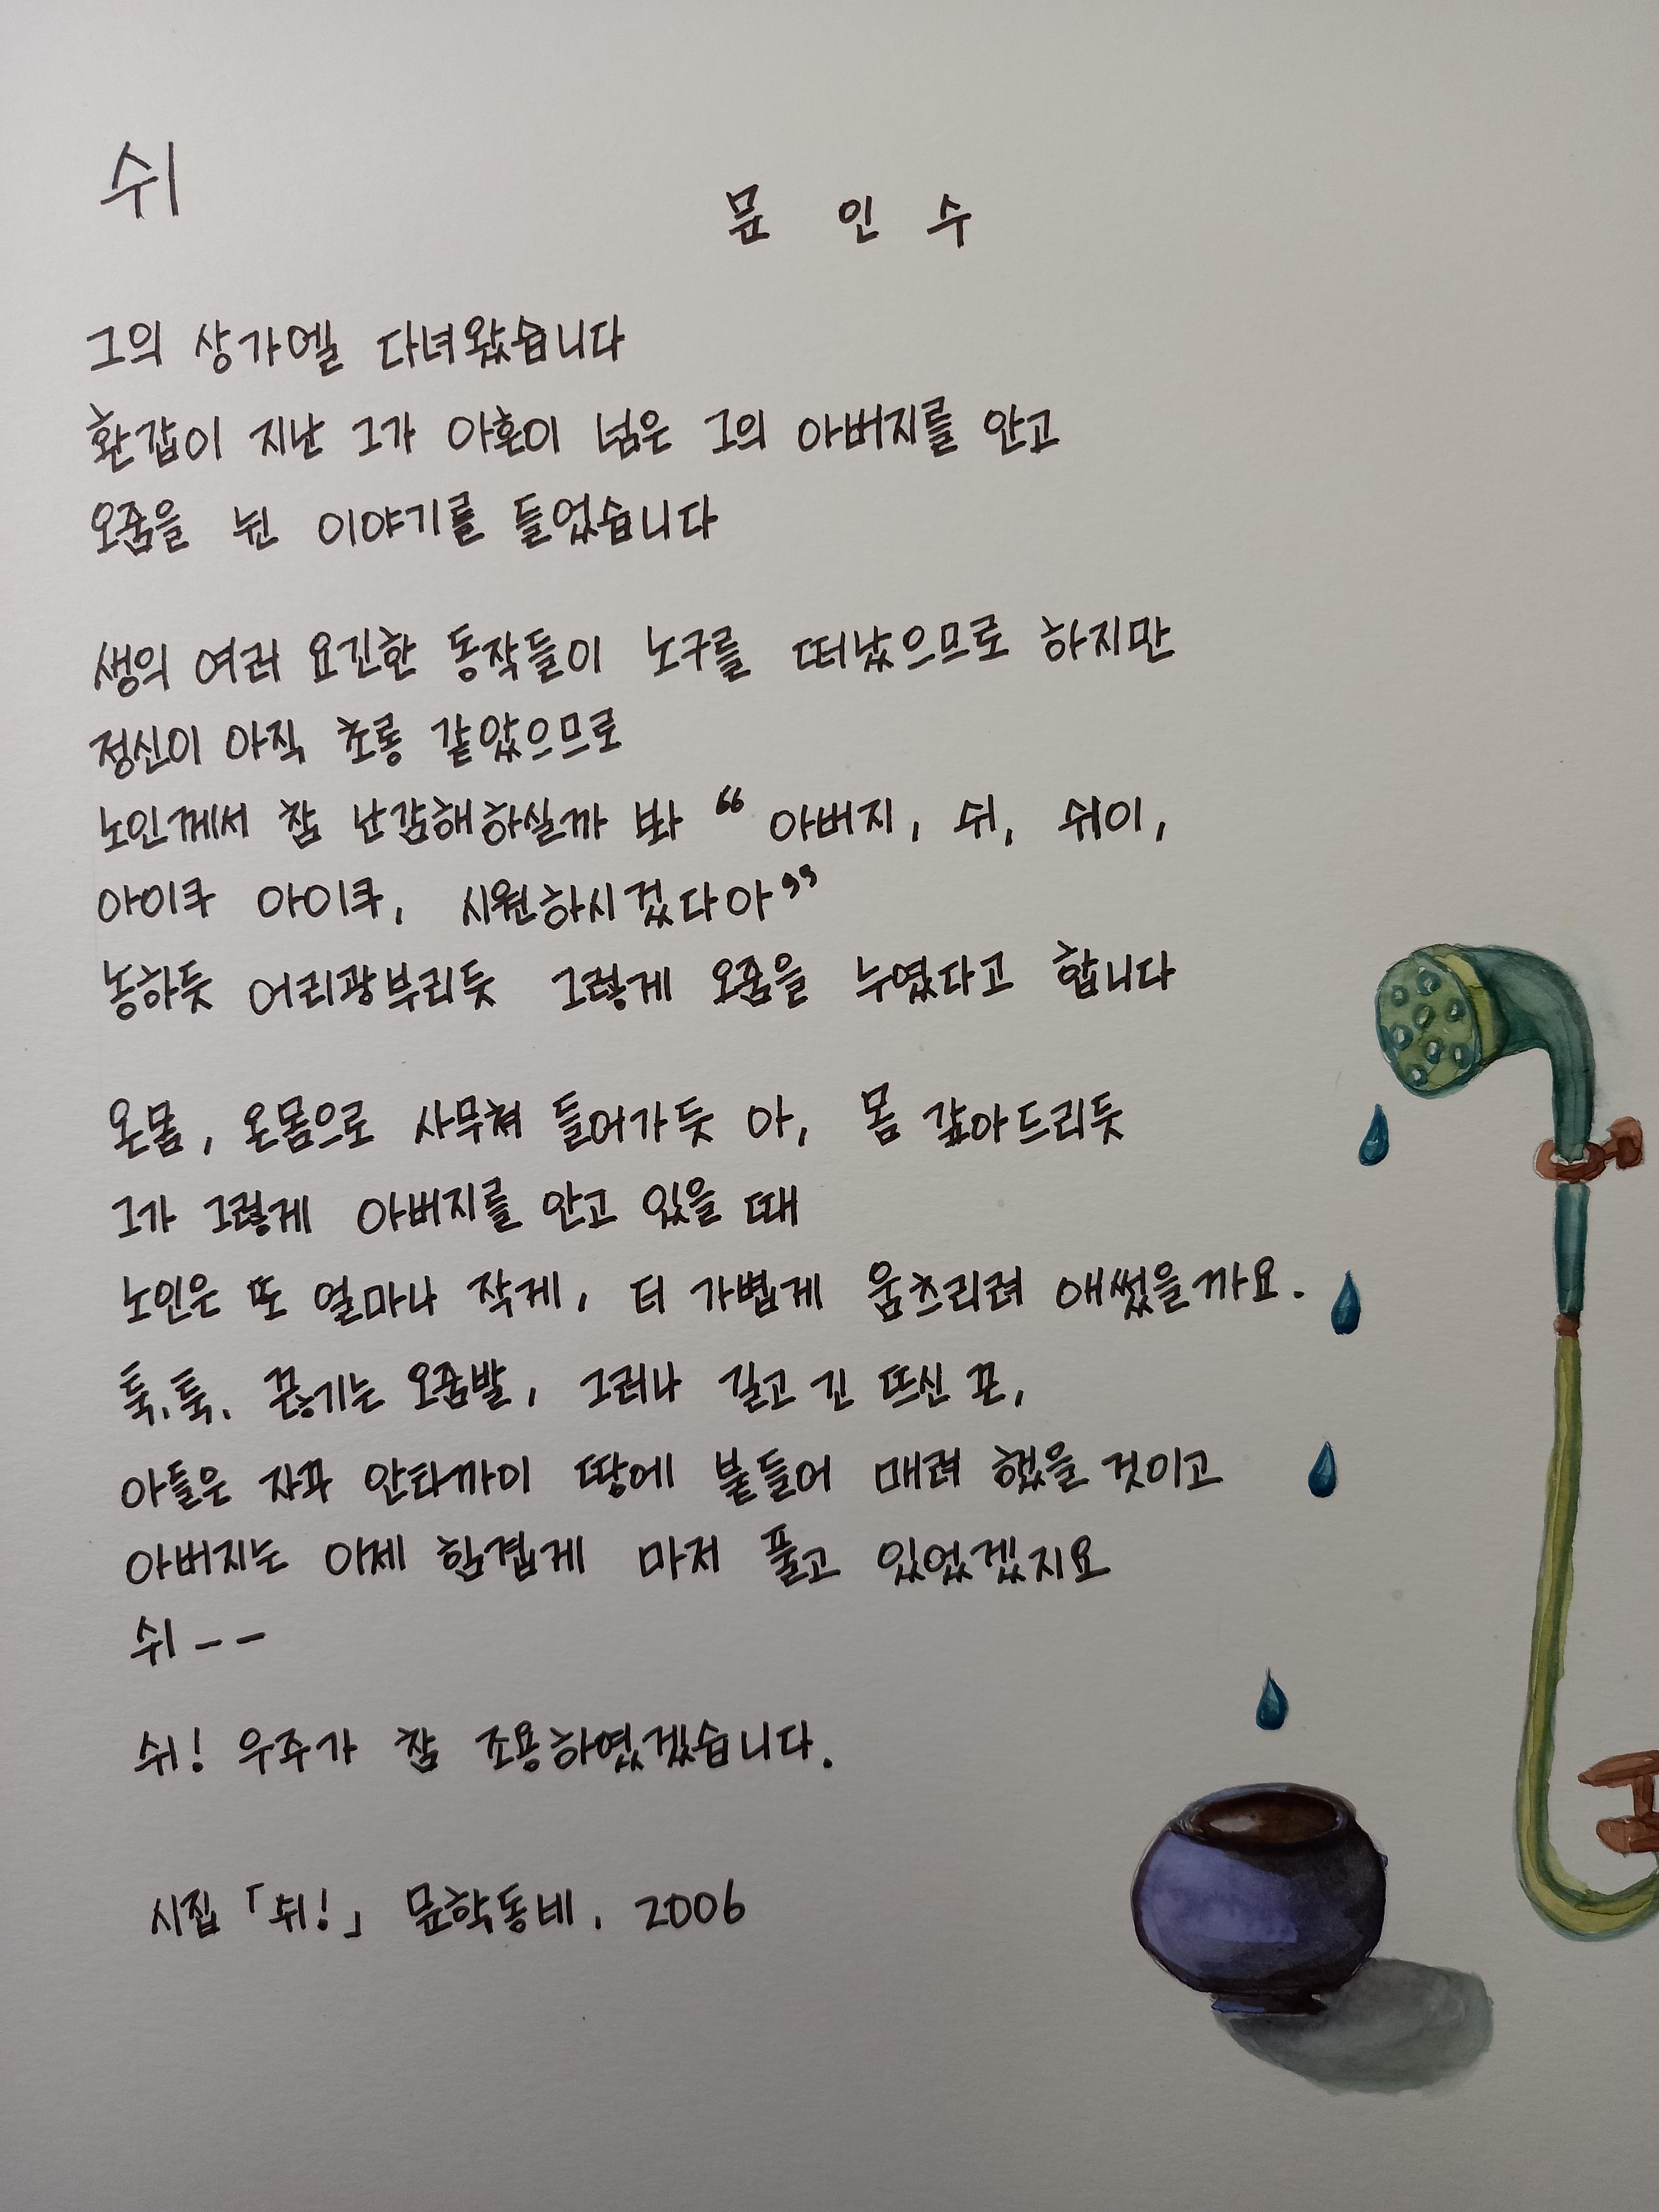 쉬
문 인 수
그의 상가엘 다녀왔습니다
환갑이 지난 그가 아흔이 넘은 그의 아버지를 안고
오줌을 뉜 이야기를 들었습니다
생의 여러 요긴한 동작들이 노구를 떠났으므로 하지만
정신이 아직 초롱 같았으므로
노인께서 참 난감해하실까 봐 “ 아버지, 쉬, 쉬이,
아이쿠 아이쿠, 시원하시겠다아”
농하듯 어리광부리듯 그렇게 오줌을 누였다고 합니다
온몸, 온몸으로 사무쳐 들어가듯 아, 몸 갚아드리듯
그가 그렇게 아버지를 안고 있을 때
노인은 또 얼마나 작게, 더 가볍게 움츠리려 애썼을까요.
툭, 툭, 끊기는 오줌발, 그러나 길고 긴 뜨신 끈,
아들은 자꾸 안타까이 땅에 붙들어 매려 했을 것이고
아버지는 이제 힘겹게 마저 풀고 있었겠지요
쉬--
쉬! 우주가 참 조용하였겠습니다.
시집 「쉬!」 문학동네, 2006